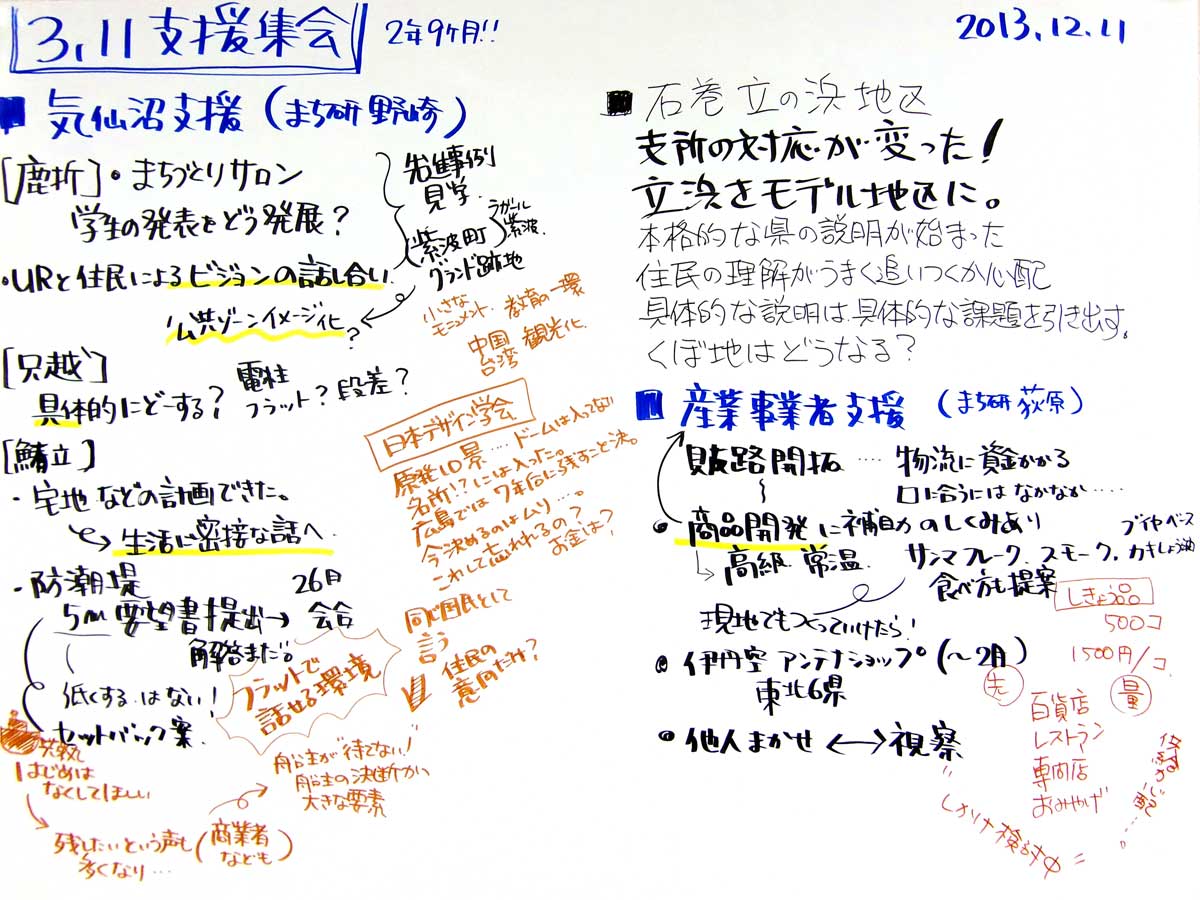 3.11 支援集会
2年9ヶ月!!
2013.12.11
■ 気仙沼支援 (まち研 野崎)
[鹿折]・まちづくりサロン
学生の発表をどう発展?
先進事例
見学.
(紫波町)
オガール
紫波.
グランド跡地
・URと住民によるビジョンの話し合い
公共ゾーンイメージ化?
小さな
モニュメント.
教育の一環
中国
台湾
観光化.
[只越]
具体的にどーする?
電柱
フラット? 段差?
[鮪立]
・宅地などの計画できた。
→ 生活に密接な話へ
・防潮堤
26日
5m 要望書提出→ 会合
解答まだ。
低くする.はない!
セットバック案.
はじめは
なくしてほしい
残したいという声も
多くなり…
(商業者
なども)
日本デザイン学会
原発10景…ドームは入ってない
名所!?には入った。
広島では7年后に残すこと決。
今決めるのはムリ…。
これして忘れれるの?
お金は?
同じ国民として
言う
住民の
意向だけ?
フラットで
話せる環境
船主が"待てない!"
船主の決断がい
大きな要素
■ 石巻 立の浜地区
支所の対応が変った!
立浜をモデル地区に。
本格的な県の説明が始まった
住民の理解がうまく追いつくか心配
具体的な説明は、具体的な課題を引き出す。
くぼ地はどうなる?
■ 産業事業者支援 (まち研 荻原)
販路開拓 …… 物流に資金かかる
口に合うには なかなか……
・商品開発に補助のしくみあり
ブイヤベース
→高級 常温. サンマフレーク. スモーク. カキしょうゆ
食べ方も提案
現地でもつくっていけたら!
しきょう品
500コ
1500円/コ
・伊丹空 アンテナショップ (〜2月)
東北6県
・他人まかせ ←→ 視察
先
量
百貨店
レストラン
専門店
おみやげ
しかけ検討中